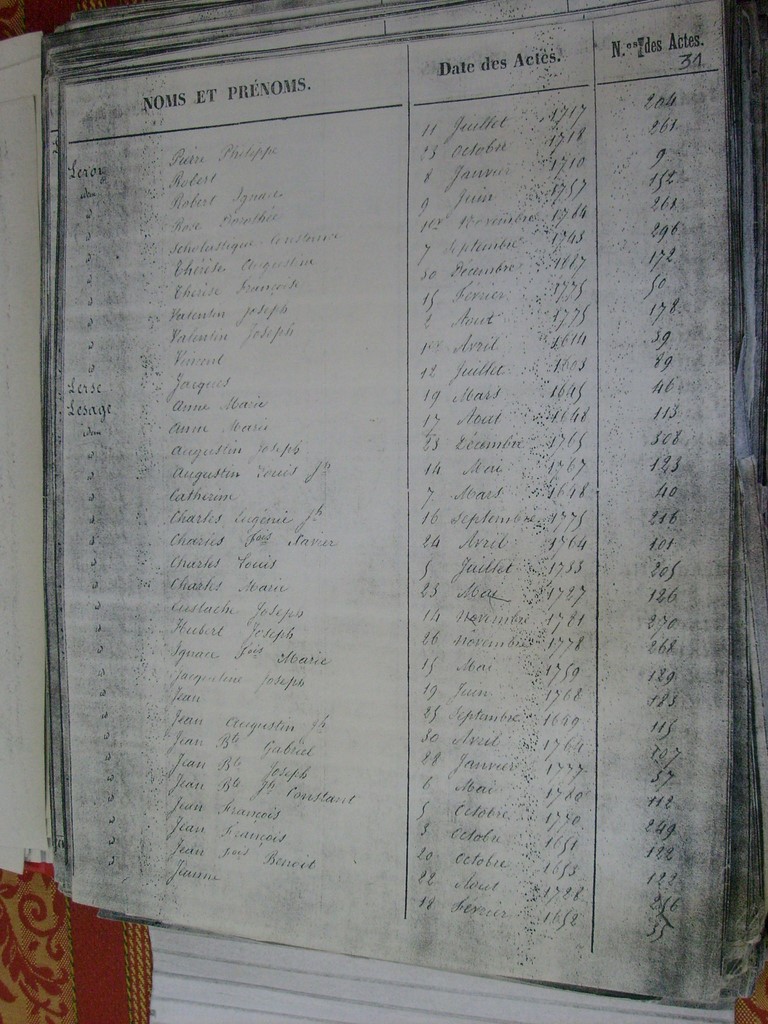 NOMS ET PRÉNOMS. Date des Actes. N.os des Actes.
31
Leroy Pierre Philippe 11 Juillet 1717 204
idem Robert 23 Octobre 1718 261
d Robert Ignace 8 Janvier 1710 9
d Rose Dorothée 9 Juin 1757 152
d Scholastique Constance 1er Novembre 1784 263
d Thérèse Augustine 7 Septembre 1743 296
d Thérèse Françoise 30 Décembre 1687 172
d Valentin Joseph 15 Février 1775 50
d Valentin Joseph 2 Aout 1775 178
d Vincent 1er Avril 1614 39
Lerse Jacques 12 Juillet 1603 89
Lesage Anne Marie 19 Mars 1645 46
idem Anne Marie 17 Aout 1648 113
d Augustin Joseph 23 Décembre 1765 308
d Augustin Louis Jh 14 Mai 1767 123
d Catherine 7 Mars 1648 40
d Charles Eugénie Jh 16 Septembre 1775 216
d Charles fois Xavier 24 Avril 1764 101
d Charles Louis 5 Juillet 1733 205
d Charles Marie 23 Mai 1727 126
d Eustache Joseph 14 Novembre 1721 270
d Hubert Joseph 26 Novembre 1778 268
d Ignace fois Marie 15 Mai 1759 129
d Jacqueline Joseph 19 Juin 1768 183
d Jean 25 Septembre 1649 115
d Jean Augustin Jh 30 Avril 1764 107
d Jean Bte Gabriel 28 Janvier 1777 37
d Jean Bte Joseph 6 Mai 1780 112
d Jean Bte Jh Constant 5 Octobre 1770 249
d Jean François 3 Octobre 1651 122
d Jean François 20 Octobre 1653 122
d Jean fois Benoit 22 Aout 1728 256
d Jeanne 18 Février 1652 35